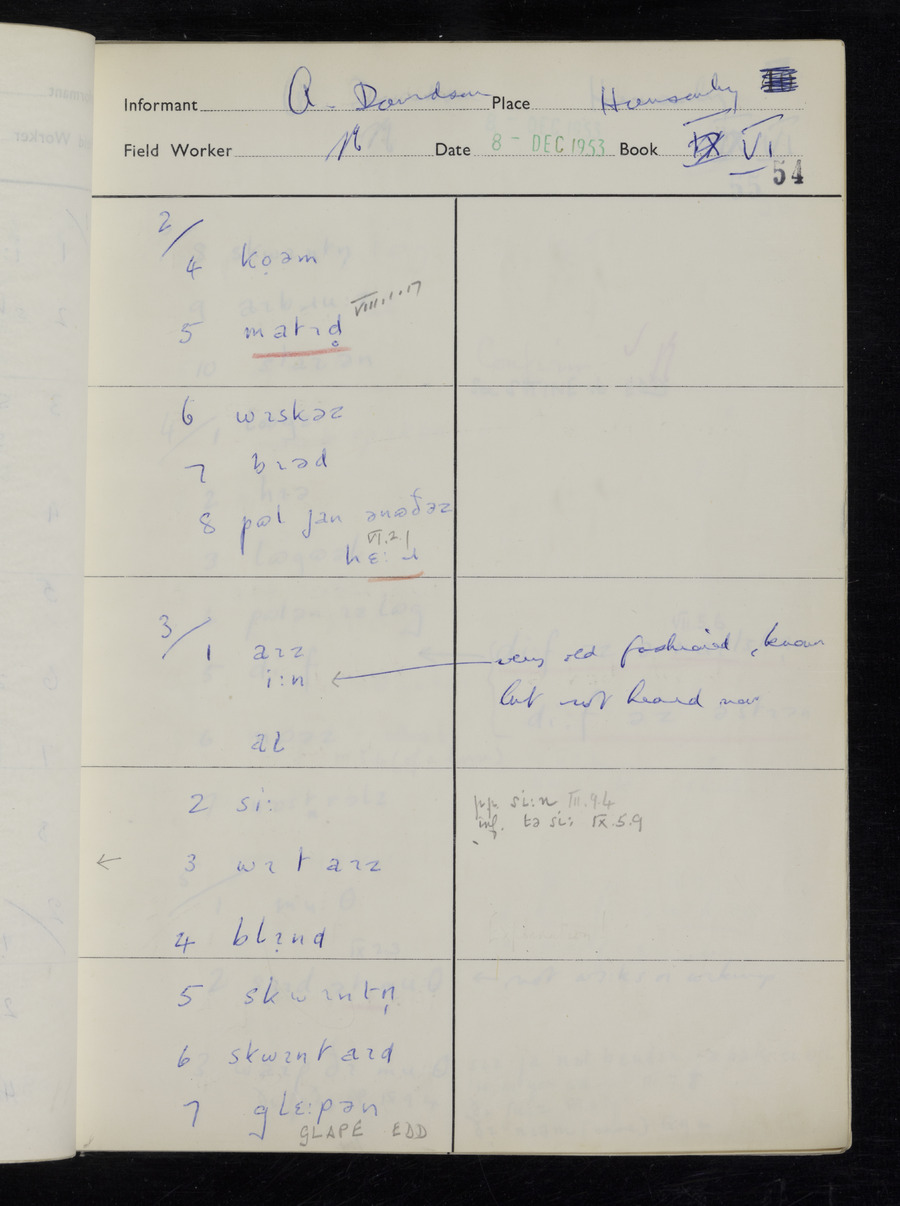 Informant A. Davidson Place
Field Worker Date 8 - DEC 1953 Book VI
54
2/
4 ko̞əm
5 matɪd̥ VIII.1.17
6 wɪskəz
7 brəd
VI.2.1
3/
1 aɪz very old fashioned, known
i:n ← but not heard now
aɪ
2 si: pp. si:n III.9.4
inf. tə si: IX.5.9
← 3 wɪt aɪz
4 blɪnd
5 skwɪntn̩
6 skwɪnt aɪd
7 glɛ:pən
GLAPE EDD